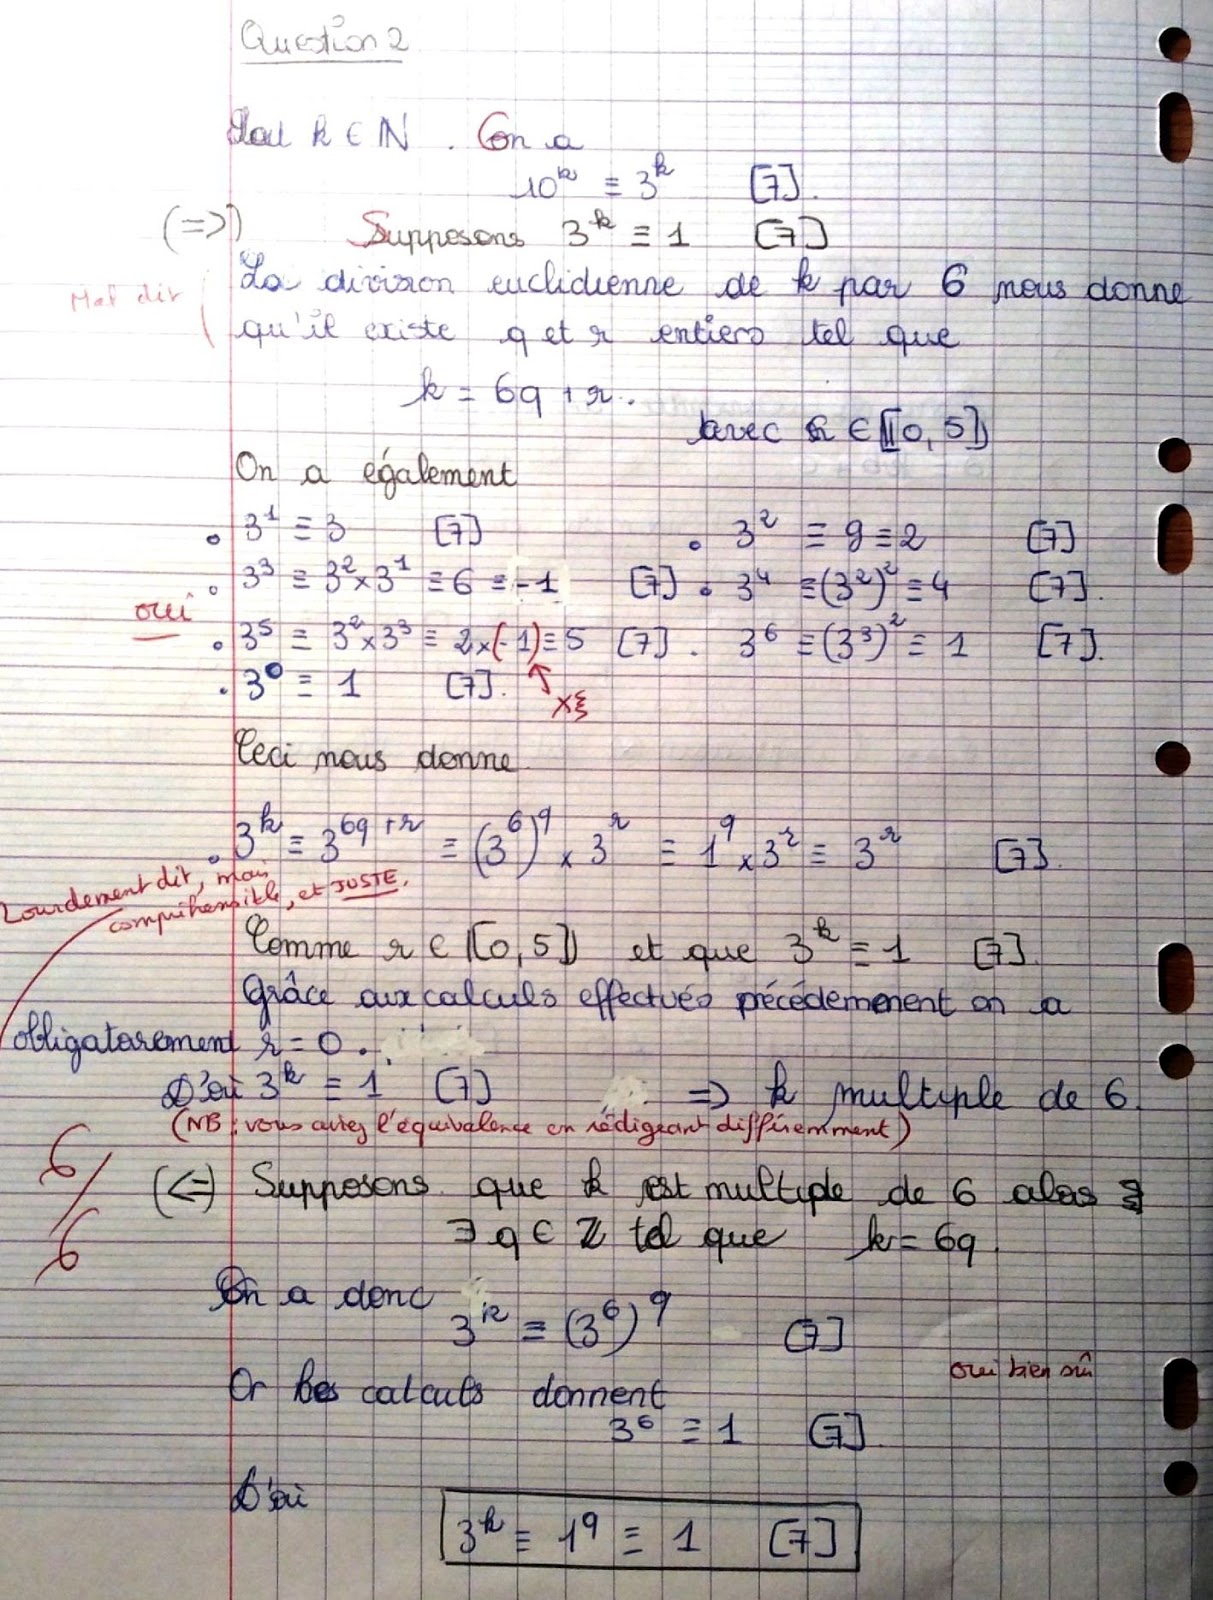 Question 2
Soit k ∈ ℕ. On a
10^k ≡ 3^k [7].
(=>) Supposons 3^k ≡ 1 [7]
Mal dit
La division euclidienne de k par 6 nous donne
qu'il existe q et r entiers tel que
k = 6q + r.
avec r ∈ ⟦0, 5⟧
On a également
• 3^1 ≡ 3 [7] • 3^2 ≡ 9 ≡ 2 [7]
• 3^3 ≡ 3^2 × 3^1 ≡ 6 ≡ -1 [7] • 3^4 ≡ (3^2)^2 ≡ 4 [7].
oui
• 3^5 ≡ 3^2 × 3^3 ≡ 2×(-1) ≡ 5 [7]. 3^6 ≡ (3^3)^2 ≡ 1 [7].
• 3^0 ≡ 1 [7].
Ceci nous donne
• 3^k ≡ 3^{6q+r} ≡ (3^6)^q × 3^r ≡ 1^q × 3^r ≡ 3^r [7].
Lourdement dit, mais
compréhensible, et JUSTE.
Comme r ∈ ⟦0, 5⟧ et que 3^k ≡ 1 [7].
Grâce aux calculs effectués précédemenent on a
obligatorement r = 0.
D'où 3^k ≡ 1 [7] => k multiple de 6.
(NB : vous aviez l'équivalence en rédigeant différemment)
6/6
(<=) Supposons que k est multiple de 6 alors
∃ q ∈ ℤ tel que k = 6q.
On a donc
3^k ≡ (3^6)^q [7]
oui bien sûr
Or les calculs donnent
3^6 ≡ 1 [7].
D'où
3^k ≡ 1^q ≡ 1 [7]